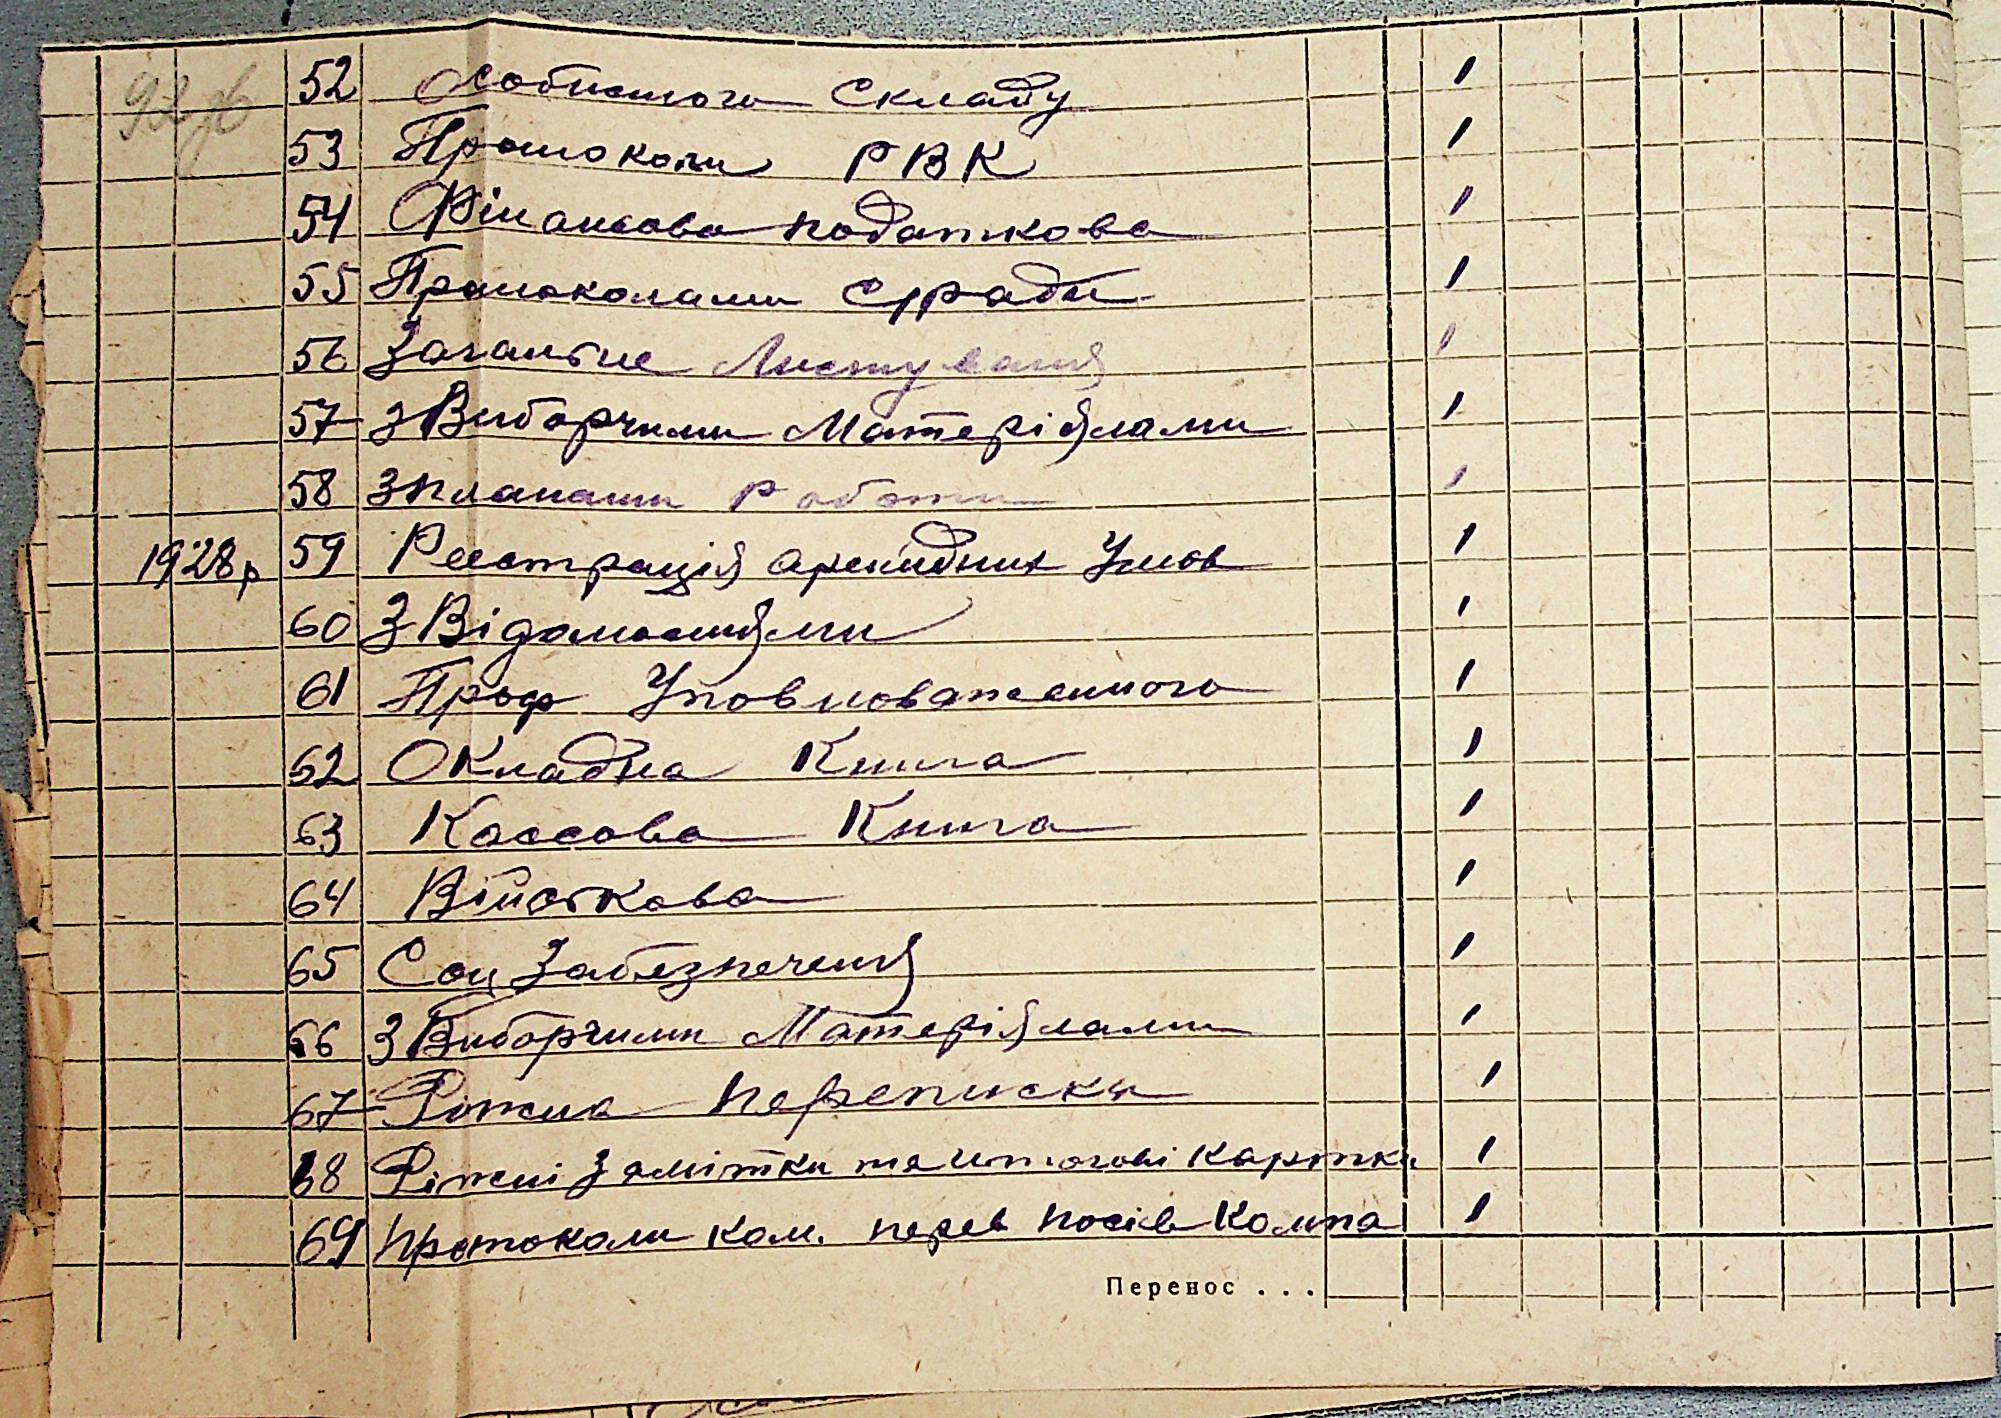 92 зв
52 Особистого Складу 1
53 Протоколи РВК 1
54 Фінансово податкова 1
55 Протоколами с/ради 1
56 Загальне Листуваня 1
57 З Виборчими Матеріялами 1
58 З планами роботи 1
1928 р 59 Реєстрація орендних Умов 1
60 З Відомостями 1
61 Проф Уповноваженного 1
62 Окладна Книга 1
63 Кассова Книга 1
64 Військова 1
65 Соц Забезпеченя 1
66 З Виборчими Матеріялами 1
67 Ріжна переписка 1
68 Ріжні Замітки та итогові картки 1
69 протоколи ком. перев посів Компа 1
Перенос . . .